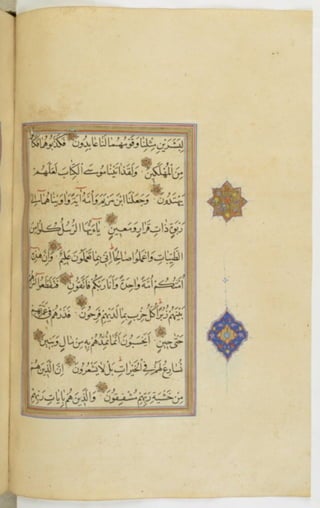 لِبَشَرَيْنِ مِثْلِنَا وَقَوْمُهُمَا لَنَا عَابِدُونَ فَكَذَّبُوهُمَا فَكَانُوا
مِنَ الْمُهْلَكِينَ وَلَقَدْ آتَيْنَا مُوسَى الْكِتَابَ لَعَلَّهُمْ
يَهْتَدُونَ وَجَعَلْنَا ابْنَ مَرْيَمَ وَأُمَّهُ آيَةً وَآوَيْنَاهُمَا إِلَى
رَبْوَةٍ ذَاتِ قَرَارٍ وَمَعِينٍ يَا أَيُّهَا الرُّسُلُ كُلُوا مِنَ
الطَّيِّبَاتِ وَاعْمَلُوا صَالِحًا إِنِّي بِمَا تَعْمَلُونَ عَلِيمٌ وَإِنَّ هَذِهِ
أُمَّتُكُمْ أُمَّةً وَاحِدَةً وَأَنَا رَبُّكُمْ فَاتَّقُونِ فَتَقَطَّعُوا أَمْرَهُمْ
بَيْنَهُمْ زُبُرًا كُلُّ حِزْبٍ بِمَا لَدَيْهِمْ فَرِحُونَ فَذَرْهُمْ فِي غَمْرَتِهِمْ
حَتَّى حِينٍ أَيَحْسَبُونَ أَنَّمَا نُمِدُّهُمْ بِهِ مِنْ مَالٍ وَبَنِينَ
نُسَارِعُ لَهُمْ فِي الْخَيْرَاتِ بَلْ لَا يَشْعُرُونَ إِنَّ الَّذِينَ هُمْ
مِنْ خَشْيَةِ رَبِّهِمْ مُشْفِقُونَ وَالَّذِينَ هُمْ بِآيَاتِ رَبِّهِمْ